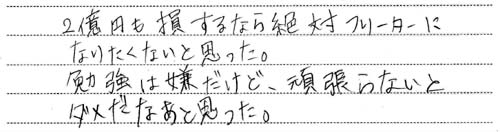 2億円も損するなら絶対フリーターに
なりたくないと思った。
勉強は嫌だけど、頑張らないと
ダメだなあと思った。